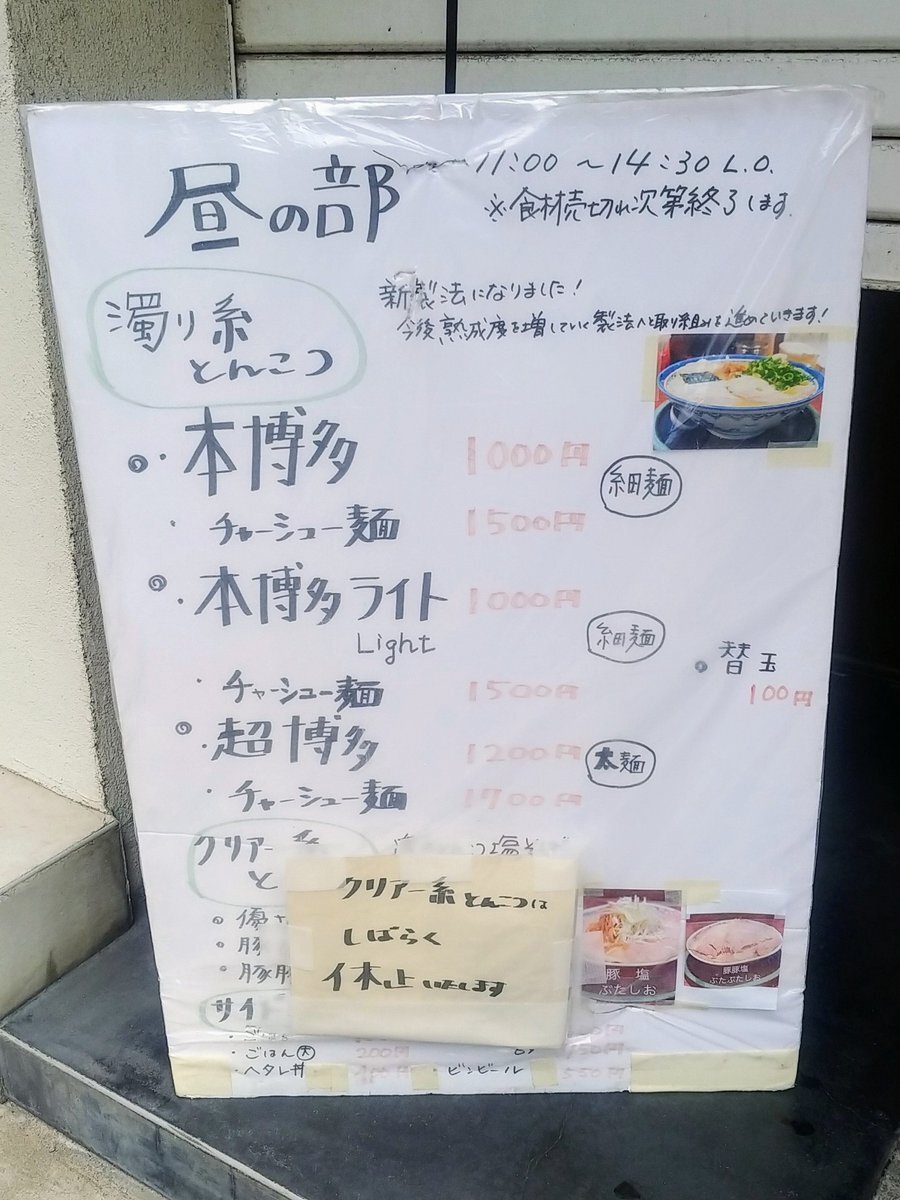 昼の部
11:00 ~ 14:30 L.O.
※食材売切れ次第終了します.
濁り系
とんこつ
新製法になりました!
今後、熟成度を増していく製法へと取り組みを進めていきます!
本博多 1000円 細麺
チャーシュー麺 1500円
本博多ライト 1000円 細麺
Light
替玉
100円
チャーシュー麺 1500円
超博多 1200円 太麺
チャーシュー麺 1700円
クリアー系
と
塩
クリアー系とんこつは
しばらく
休止いたします
豚
豚豚
豚塩
ぶたしお
豚豚塩
ぶたぶたしお
サイ
ごはん大 200円
ヘタレ丼
ビンビール 550円